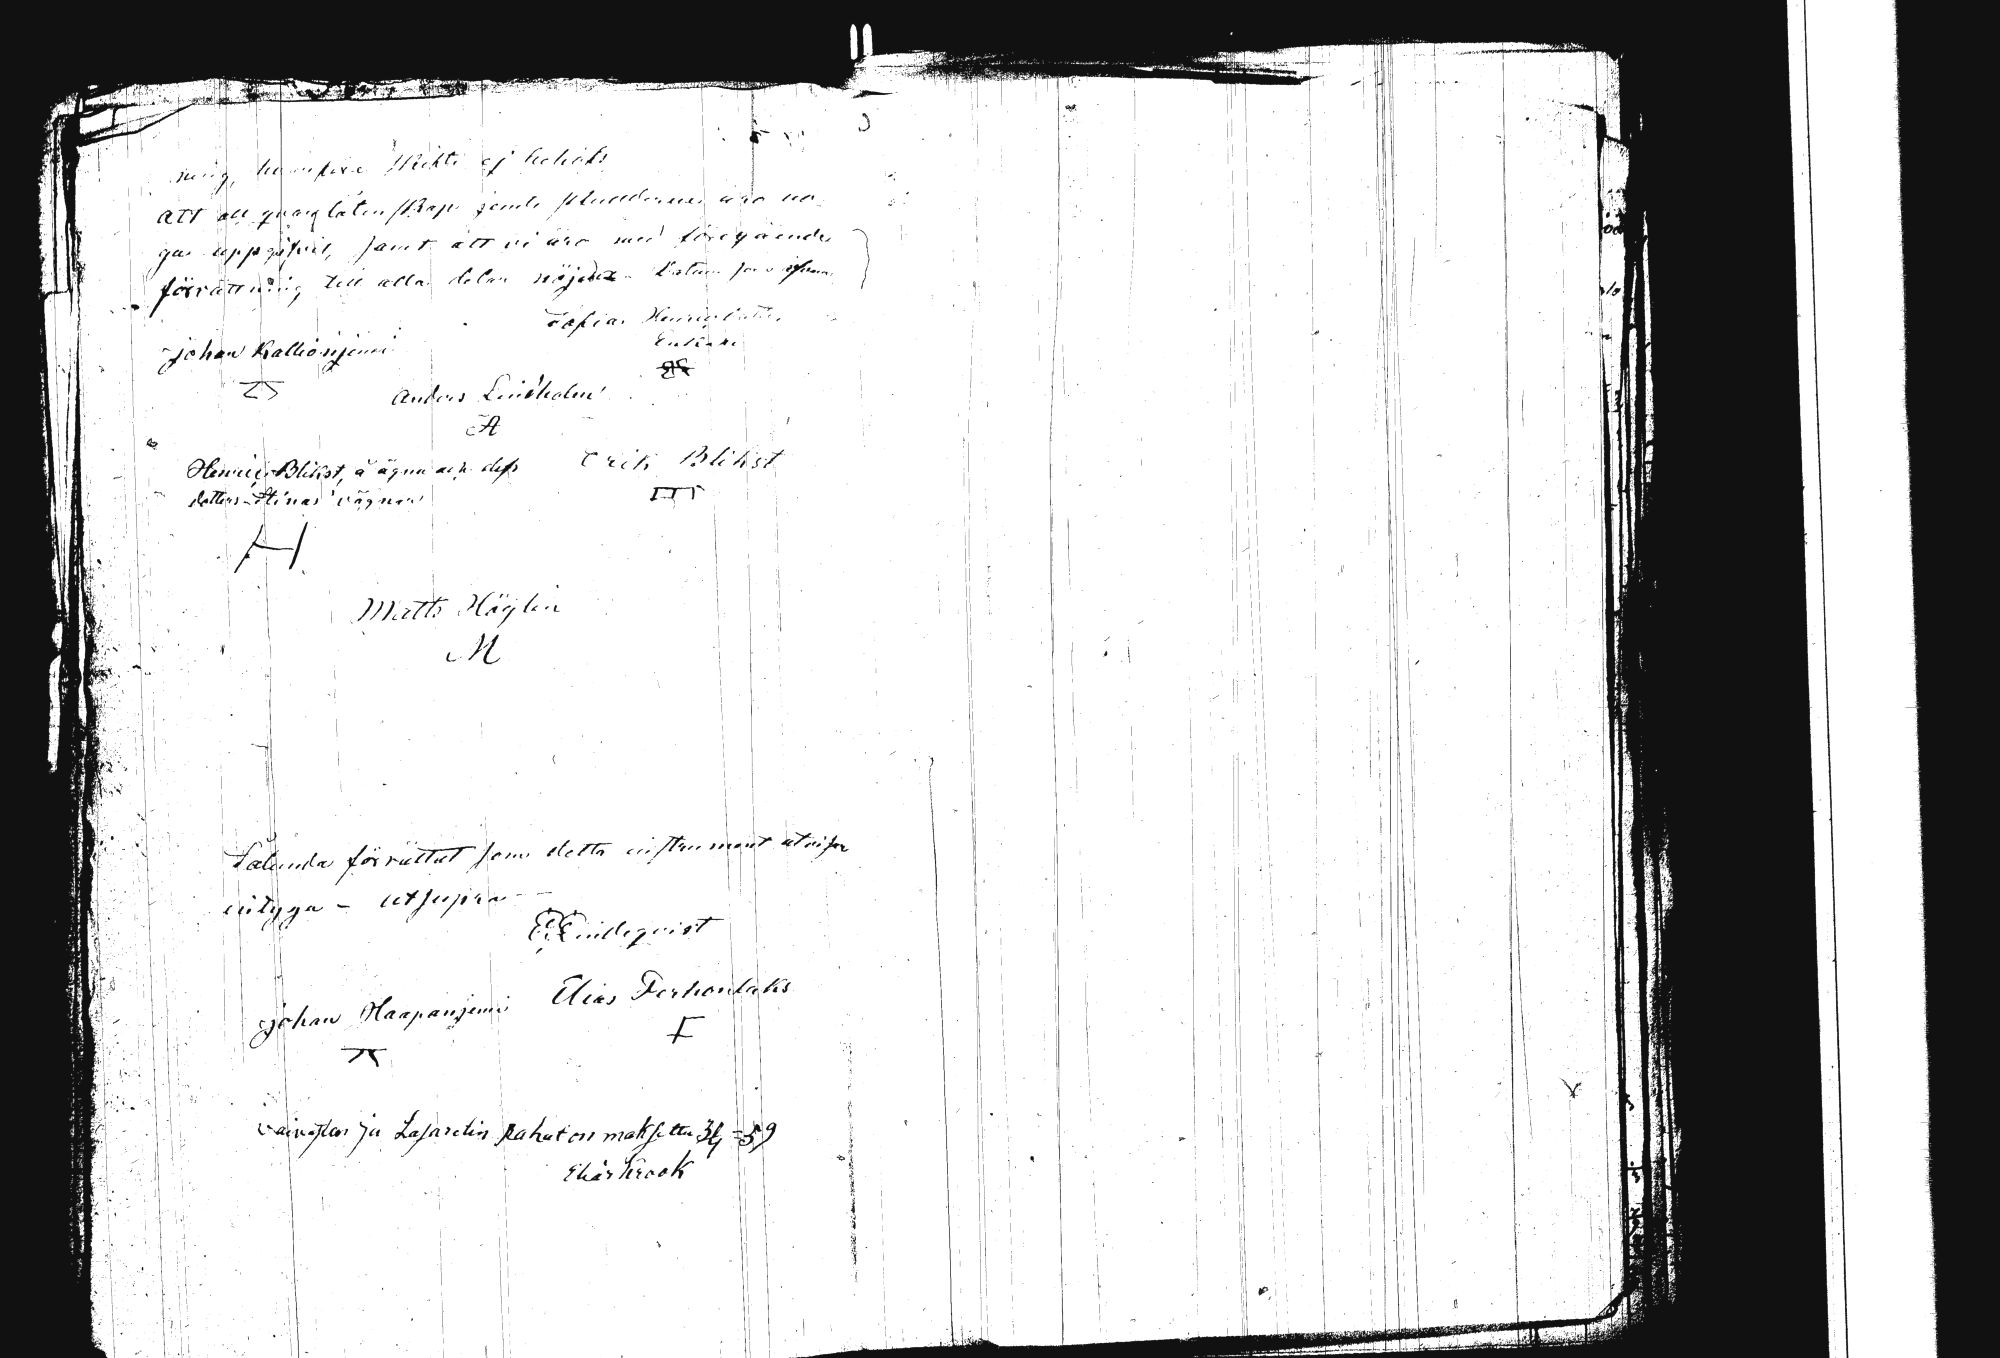 ning, hvilket  ej behöfs
att all qvarlåtenskap jemte skulderne äro no
ga uppgifvit, samt att vi äro med föregående
förrättning till alla delar nöjde Datum som ofvan
Sofia Henricsdotter
Enkka
Johan Kallionjemi
Anders Lindholm
A
Henric Blikst, å ägna och dess
dotters Stinas vägnar
Erik Blikst
H
Matts Höglin
M
Sålunda förrättat som detta instrument utvisar
intyga - ut supra -
E Lindeqvist
Johan Haapanjemi
Elias Ferhonlaks
F
vaivaston ja Lasaretin Rahat on maksettu 34 = 59
Elias Krook